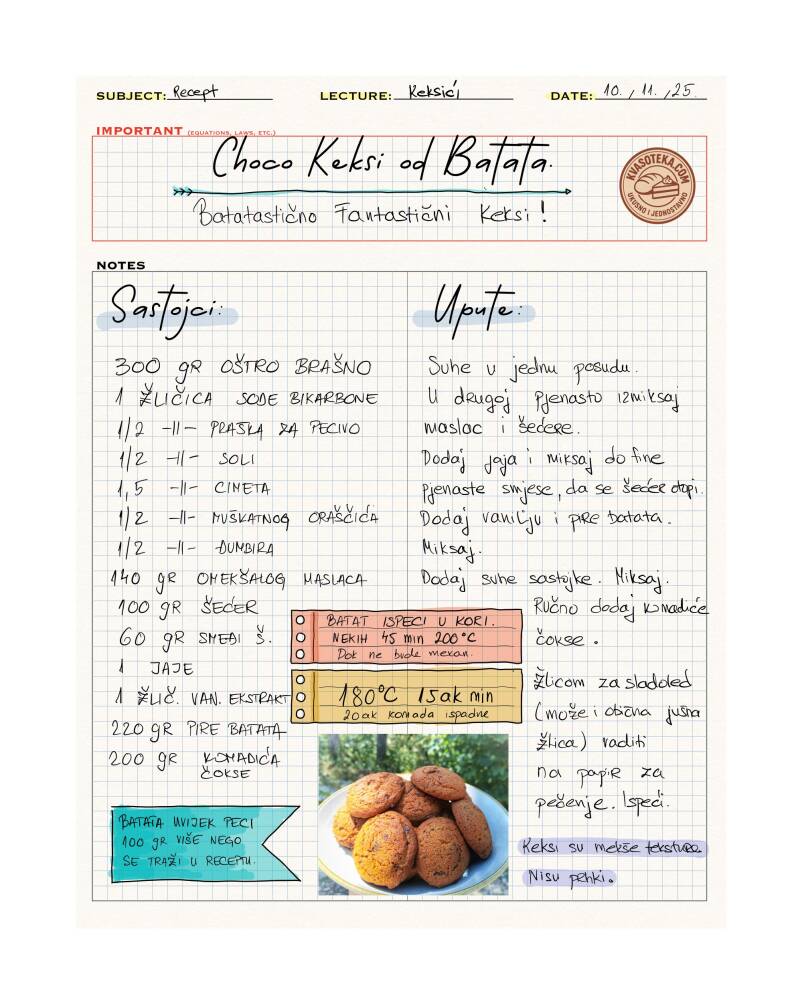 SUBJECT: Recept
LECTURE: Keksići
DATE: 10. , 11. , 25.
IMPORTANT (EQUATIONS, LAWS, ETC.)
Choco Keksi od Batata.
Batatastično Fantastični Keksi!
KVASOTEKA.COM
UKUSNO I JEDNOSTAVNO
NOTES
Sastojci:
300 gR OŠTRO BRAŠNO
1 ŽLIČICA SODE BIKARBONE
1/2 -||- PRAŠKA ZA PECIVO
1/2 -||- SOLI
1,5 -||- CIMETA
1/2 -||- MUŠKATNOG ORAŠČIĆA
1/2 -||- ĐUMBIRA
140 gR OMEKŠALOG MASLACA
100 gR ŠEĆER
60 gR SMEĐI Š.
1 JAJE
1 ŽLIČ. VAN. EKSTRAKT
220 gR PIRE BATATA
200 gR KOMADIĆA
ČOKSE
BATATA UVIJEK PECI
100 gR VIŠE NEGO
SE TRAŽI U RECEPTU.
Upute:
Suhe u jednu posudu.
U drugoj pjenasto izmiksaj
maslac i šećere.
Dodaj jaja i miksaj do fine
pjenaste smjese, da se šećer otopi.
Dodaj vaniliju i pire batata.
Miksaj.
Dodaj suhe sastojke. Miksaj.
Ručno dodaj komadiće
čokse.
Žlicom za sladoled
(može i obična jušna
žlica) vaditi
na papir za
pečenje. Ispeći.
BATAT ISPECI U KORI.
NEKIH 45 min 200°C
Dok ne bude mekan.
180°C 15ak min
20ak komada ispadne
Keksi su mekše teksture.
Nisu prhki.